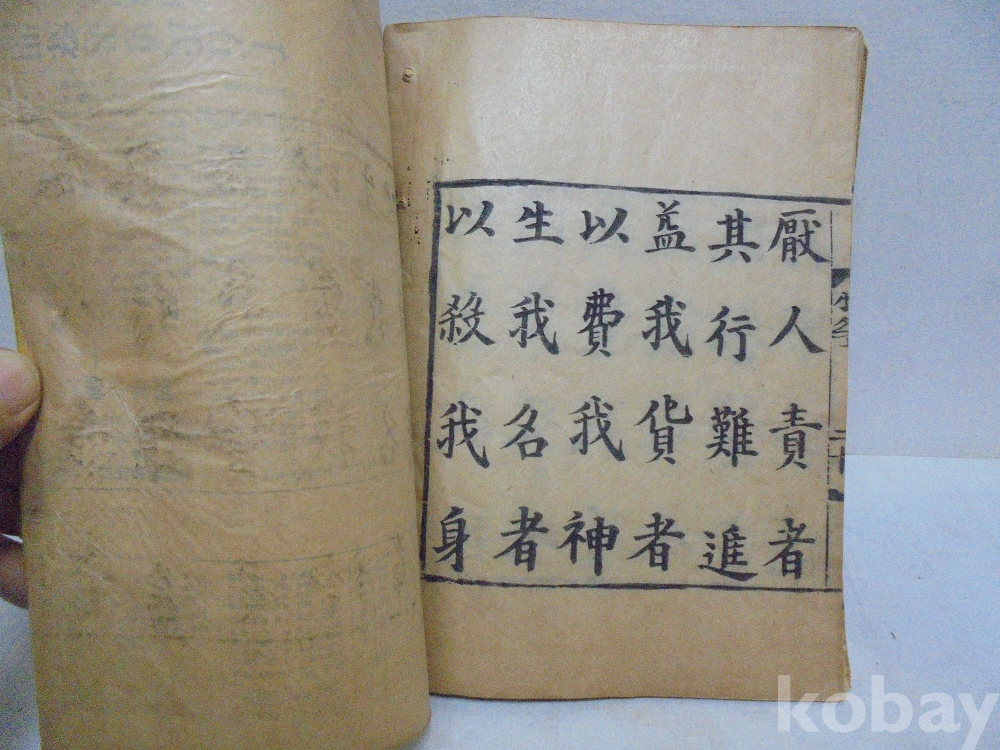 厭人責者
其行難進
益我貨者
以費我神
生我名者
以殺我身
kobay